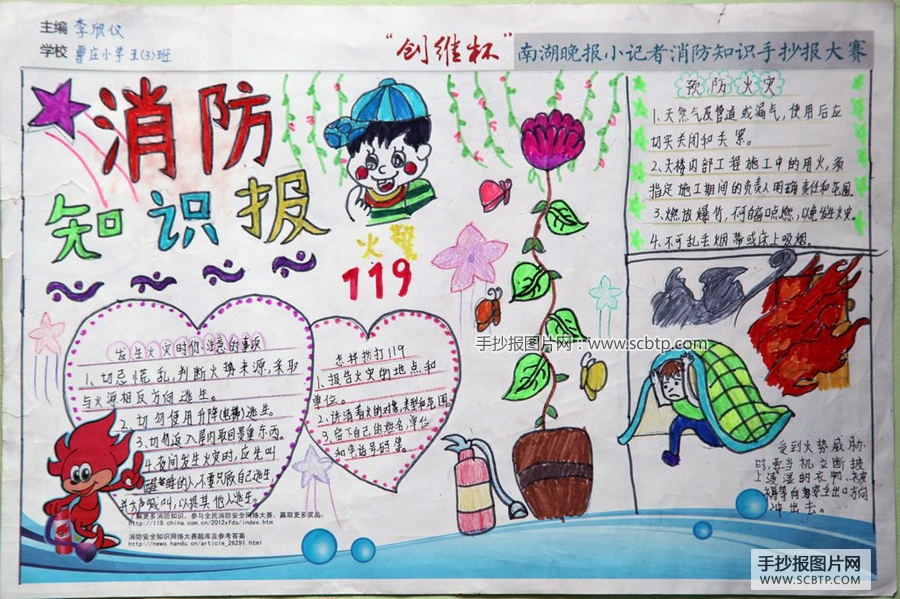 主编 李欣仪
学校 曹庄小学五(3)班
"创维杯"南湖晚报小记者消防知识手抄报大赛
消防
知识报
火警
119
预防火灾
1、天然气及管道或漏气,使用后应
切实关闭和关累。
2、大楼内部工程施工中的用火,须
指定施工期间的负责人明确责任和范围
3、燃放爆竹,
4、不可乱丢烟蒂或床上吸烟。
发生火灾时你注意的事项
1、切忌慌乱,判断火势来源,采取
与火源相反方向逃生。
2、切勿使用升降(电梯)逃生。
3、切勿返入屋内取回贵重东西。
4、夜间发生火灾时,应先叫
醒熟睡的人不要只顾自己逃生
并大声喊叫,以提其他人逃生。
怎样拨打119
1、报告火灾的地点和
单位。
2、讲清着火的对象,类型和范围
3、留下自己的姓名,单位
和电话号码等
手抄报图片网:www.scbtp.com
受到火势威胁
时,要当机立断披
上浸湿的衣物、
等向安全出口方向
冲出去。
了解更多消防知识,参与全民消防安全网络大赛、赢取更多奖品:
http://119.china.com.cn/2012xfds/index.htm
消防安全知识网络大赛题库及参考答案
http://news.handu.cn/article_26291.html
手抄报图片网
WWW.SCBTP.COM